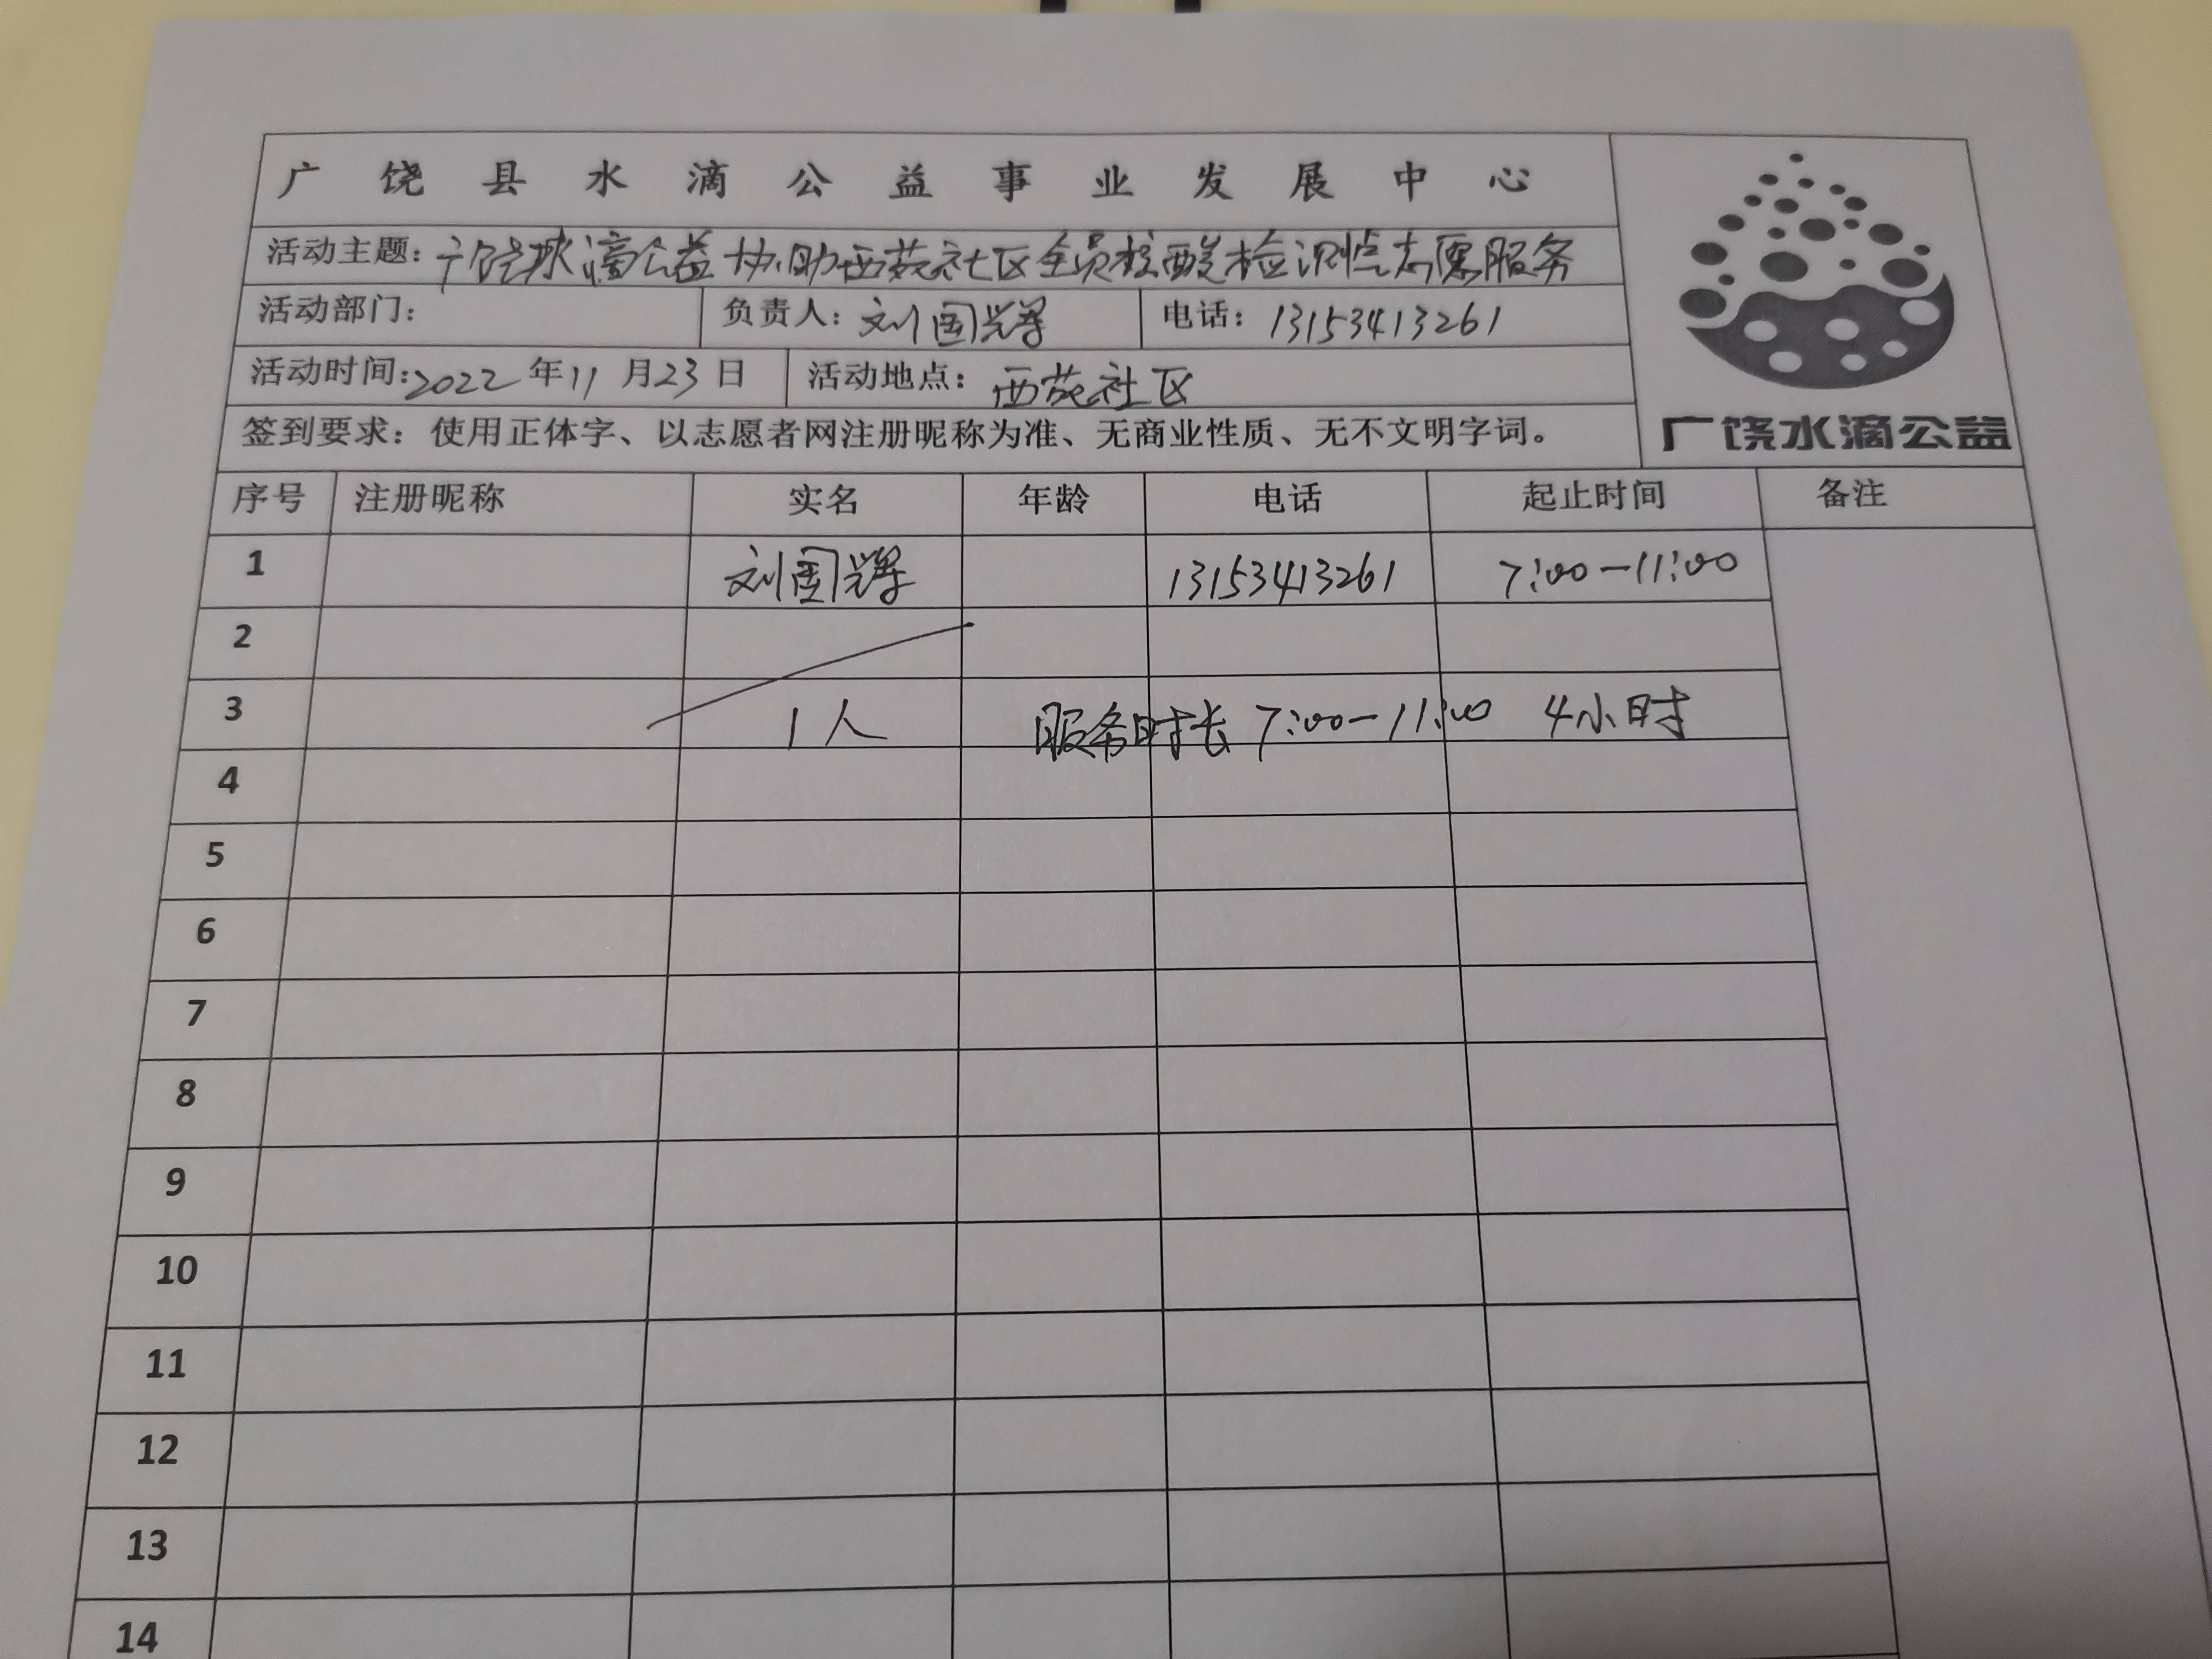 广饶县水滴公益事业发展中心
活动主题：广饶水滴公益协助西苑社区全员核酸检测点志愿服务
活动部门： 负责人：刘国辉 电话：13153413261
活动时间：2022年11月23日 活动地点：西苑社区
签到要求：使用正体字、以志愿者网注册昵称为准、无商业性质、无不文明字词。
广饶水滴公益
序号 注册昵称 实名 年龄 电话 起止时间 备注
1 刘国辉 13153413261 7:00-11:00
2
3 1人 服务时长 7:00-11:00 4小时
4
5
6
7
8
9
10
11
12
13
14